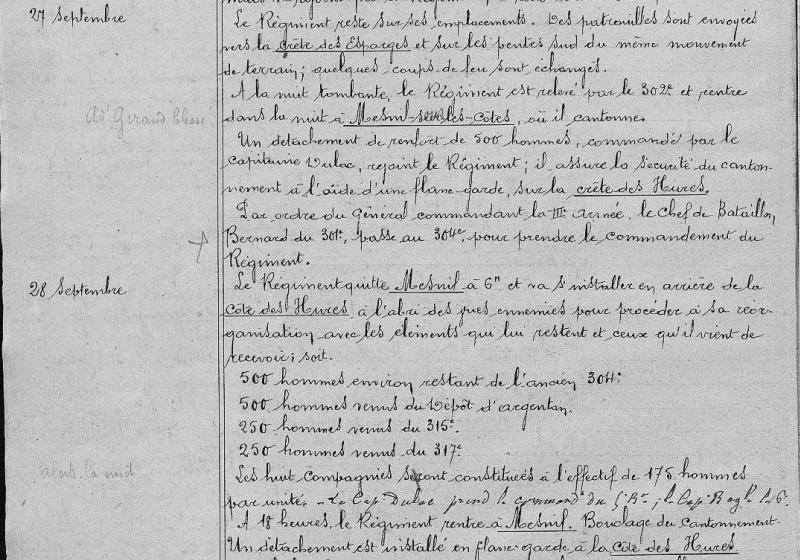 27 Septembre
Le Régiment reste sur ses emplacements. Des patrouilles sont envoyées
vers la crête des Esparges et sur les pentes sud du même mouvement
de terrain; quelques coups de feu sont échangés.
A la nuit tombante, le Régiment est relevé par le 302e et rentre
dans la nuit à Mesnil-sous-les-Côtes, où il cantonne.
Adt Giraud blessé
Un détachement de renfort de 500 hommes, commandé par le
Capitaine Dulac, rejoint le Régiment; il assure la sécurité du canton-
nement à l'aide d'une flanc-garde, sur la crête des Hures.
Par ordre du Général commandant la IIIe Armée, le Chef de Bataillon
Bernard du 301e, passe au 304e, pour prendre le commandement du
Régiment.
28 Septembre
Le Régiment quitte Mesnil à 6h et va s'installer en arrière de la
Côte des Hures, à l'abri des vues ennemies pour procéder à sa réor-
ganisation avec les éléments qui lui restent et ceux qu'il vient de
recevoir; soit.
500 hommes environ restant de l'ancien 304e
500 hommes venus du Dépôt d'Argentan.
250 hommes venus du 315e.
250 hommes venus du 317e.
Les huit compagnies seront constituées à l'effectif de 175 hommes
par unité. - Le Cape Dulac prend le commandt du Bon; le Cape
alerte la nuit
A 18 heures, le Régiment rentre à Mesnil. Bouclage du Cantonnement.
Un détachement est installé en flanc-garde à la Côte des Hures